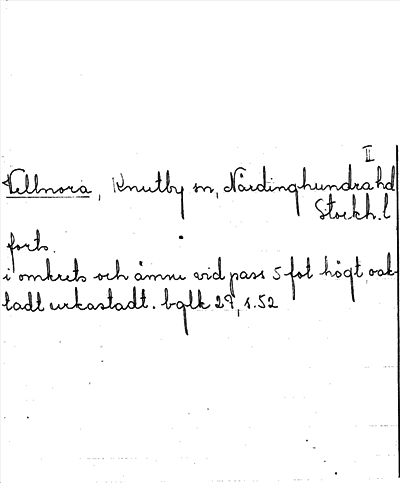 II
Vellnora, Knutby sn, Närdinghundra hd
Stockh. l
forts.
i omkrets och ännu vid pass 5 fot högt, oak-
tadt urkastadt. bglk 29, s. 52